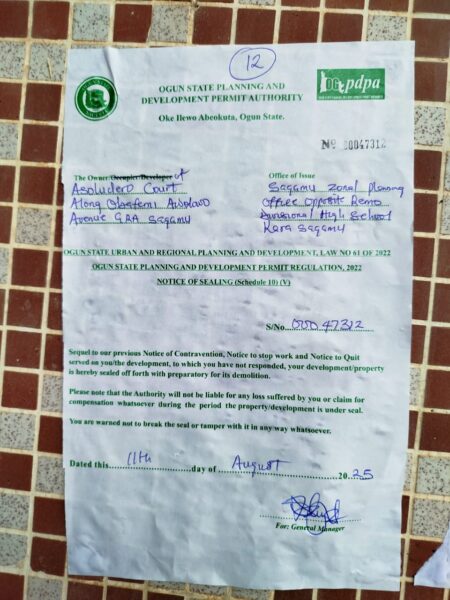 12
OGUN STATE PLANNING AND
DEVELOPMENT PERMIT AUTHORITY
Oke Ilewo Abeokuta, Ogun State.
pdpa
Nº 00047312
The Owner/Occupier/Developer of
Asoludero Court
Along Obafemi Awolowo
Avenue GRA Sagamu
Office of Issue
Sagamu Zonal planning
office opposite Remo
Divisional High School
Kara Sagamu
OGUN STATE URBAN AND REGIONAL PLANNING AND DEVELOPMENT, LAW NO 61 OF 2022
OGUN STATE PLANNING AND DEVELOPMENT PERMIT REGULATION, 2022
NOTICE OF SEALING (Schedule 10) (V)
S/No...00047312
Sequel to our previous Notice of Contravention, Notice to stop work and Notice to Quit
served on you/the development, to which you have not responded, your development/property
is hereby sealed off forth with preparatory for its demolition.
Please note that the Authority will not be liable for any loss suffered by you or claim for
compensation whatsoever during the period the property/development is under seal.
You are warned not to break the seal or tamper with it in any way whatsoever.
Dated this 11th day of August 2025
For: General Manager